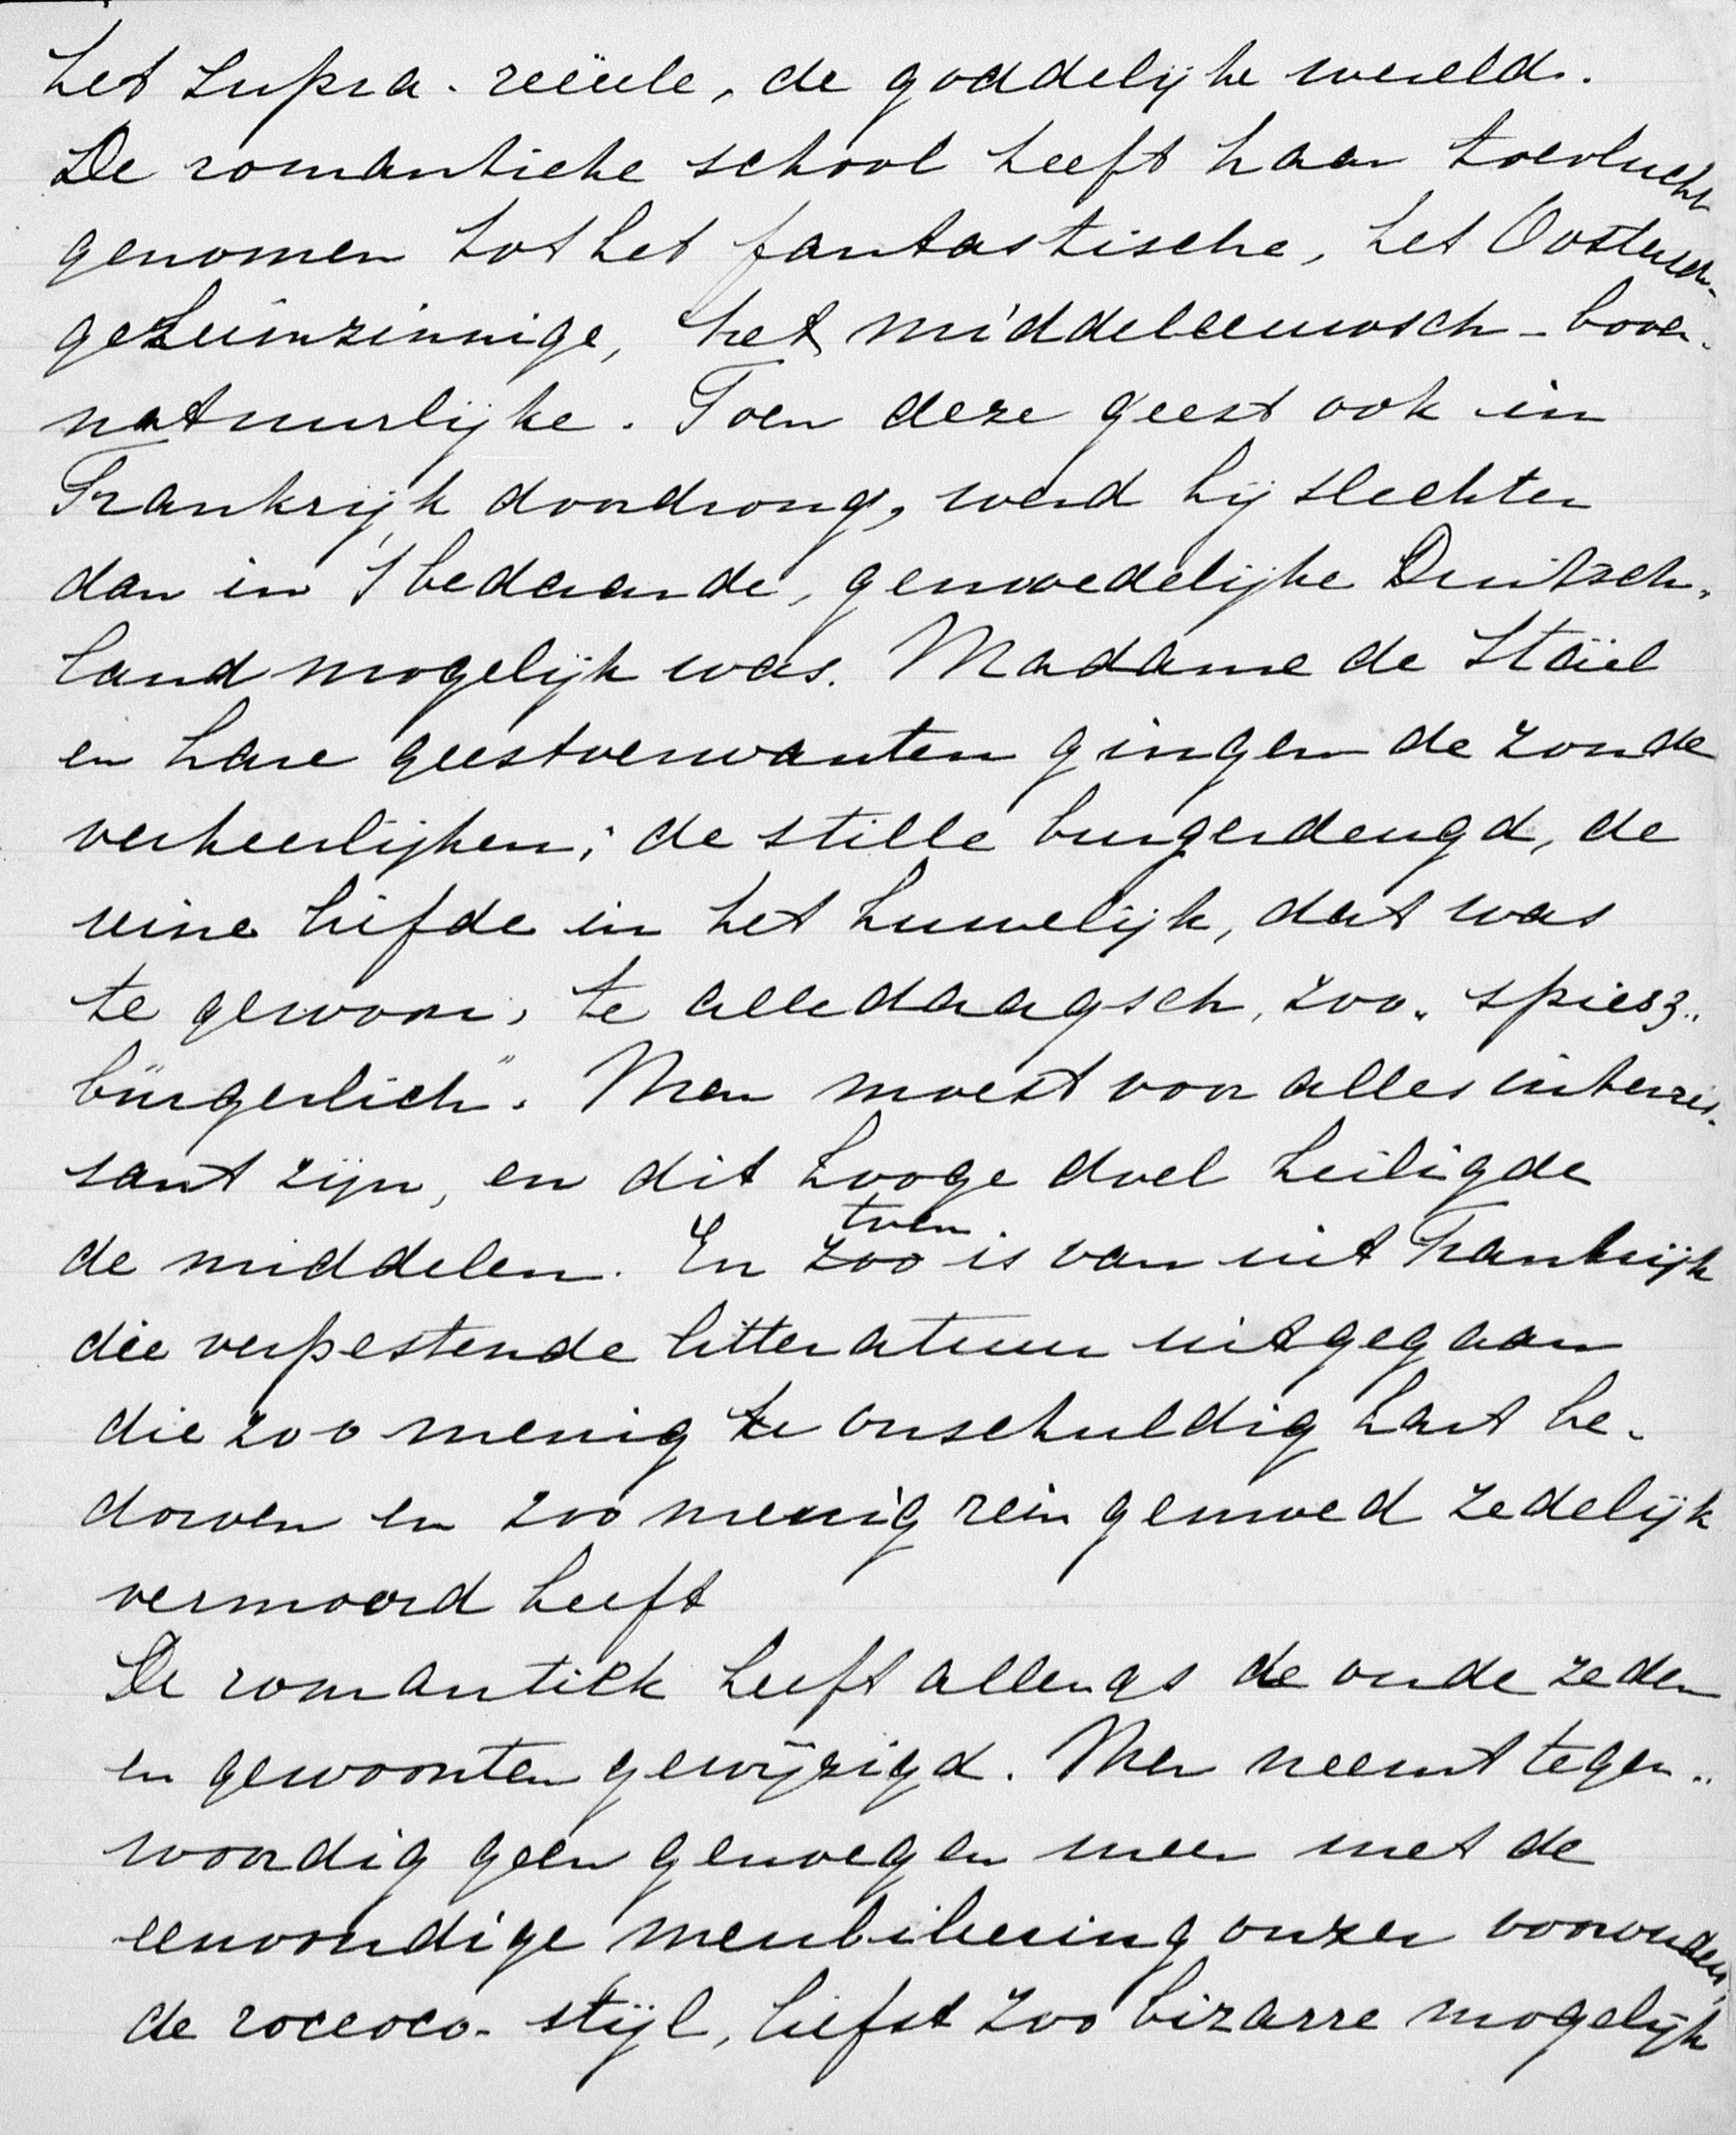 het supra-reëele, de goddelijke wereld.
De romantiche school heeft haar toevlucht
genomen tot het fantastische, het Oostersch-
geheimzinnige, het middeleeuwsch-boven-
natuurlijke. Toen deze geest ook in
Frankrijk doordrong, werd hij slechter
dan in 't bedaarde, gemoedelijke Duitsch-
land mogelijk was. Madame de Stäel
en hare geestverwanten gingen de zonde
verheerlijken; de stille burgerdeugd, de
reine liefde in het huwelijk, dat was
te gewoon, te alledaagsch, zoo „spiesz-
bürgerlich". Men moest voor alles interes-
sant zijn, en dit hooge doel heiligde
de middelen. En toen is van uit Frankrijk
die verpestende litteratuur uitgegaan
die zoo menig onschuldig hart be-
dorven en zoo menig rein gemoed zedelijk
vermoord heeft
De romantiek heeft allengs de oude zeden
en gewoonten gewijzigd. Men neemt tegen-
woordig geen genoegen meer met de
eenvoudige meubileering onzer voorouders,
de roccoco-stijl, liefst zoo bizarre mogelijk